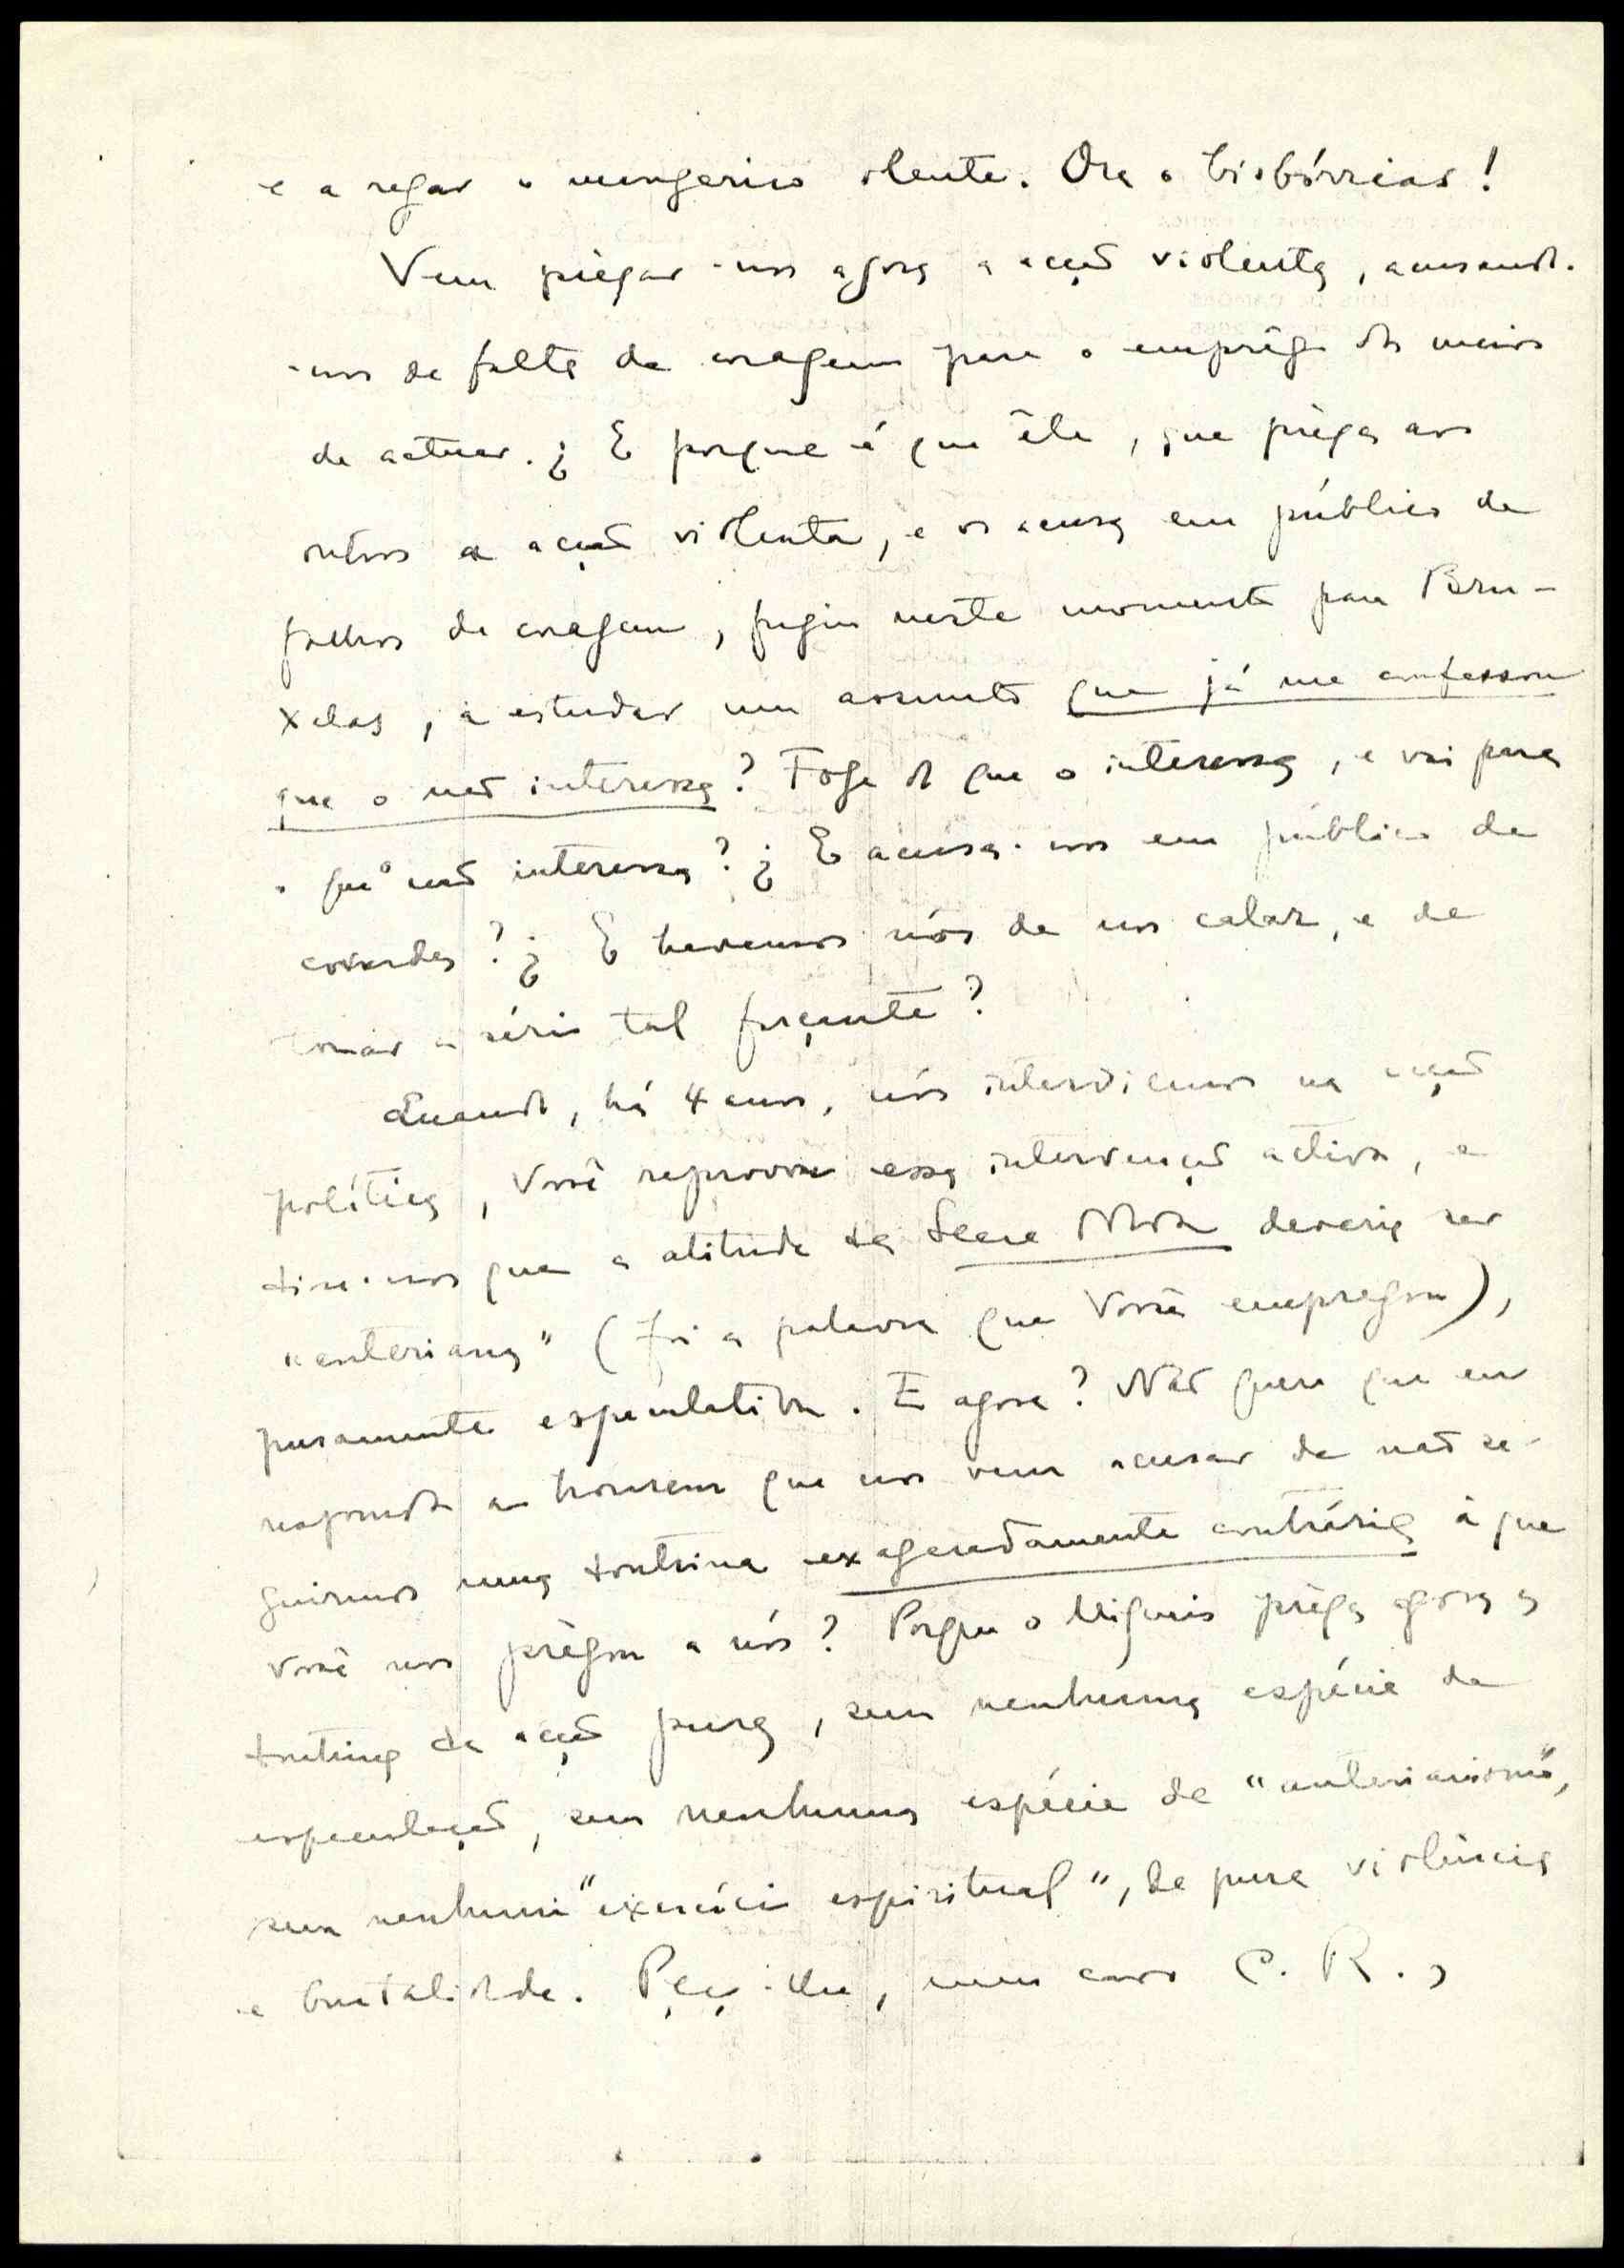 e a regar o mangerico olente. Ora o bisbórrias!
Vem prègar-nos agora a acção violenta, acusando-
-nos de falta de coragem para o emprêgo dos meios
de actuar. ¿E porque é que êle, que prèga aos
outros a acção violenta, e os acusa em público de
falhos de coragem, fugiu neste momento para Bru-
xelas, a estudar um assunto que já me confessou
que o não interessa? Foge do que o interessa, e vai para
o que o não interessa? ¿E acusa-nos em público de
covardes? ¿E havemos nós de nos calar, e de
tomar a sério tal farçante?
Quando, há 4 anos, nós interviemos na acção
política, Você reprovou essa intervenção activa, e
disse-nos que a atitude da Seara Nova deveria ser
"anteriana" (foi a palavra que Você empregou),
puramente especulativa. E agora? Não quere que eu
responda ao homem que nos vem acusar de não se-
guirmos uma doutrina exageradamente contrária à que
Você nos prègou a nós? Porque o Migueis prèga agora a
doutrina da acção pura, sem nenhuma espécie de
especulação, sem nenhuma espécie de "anterianismo",
sem nenhum "exercício espiritual", de pura violência
e brutalidade. Peço-lhe, meu caro C. R.,